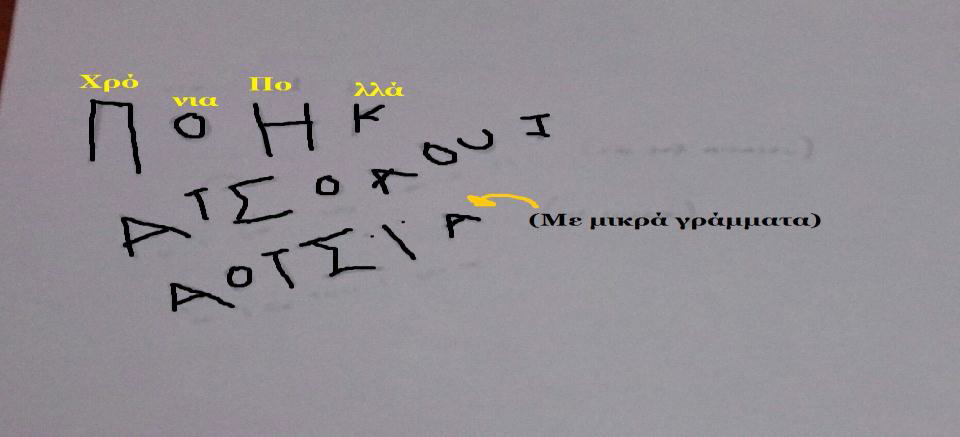 Χρό νια Πο λλά
Π Ο Η Κ
Α Τ Σ Ο Χ Ο U Ι
Α Ο Τ Σ Ι Α
(Με μικρά γράμματα)